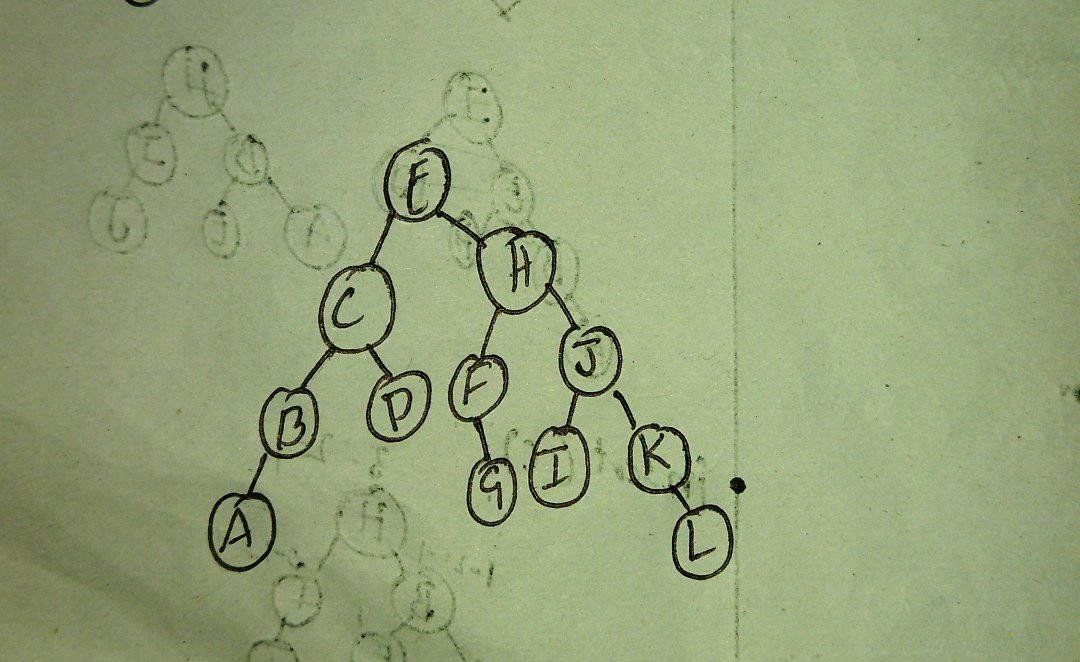 E
C H
B D F J
A G I K
L